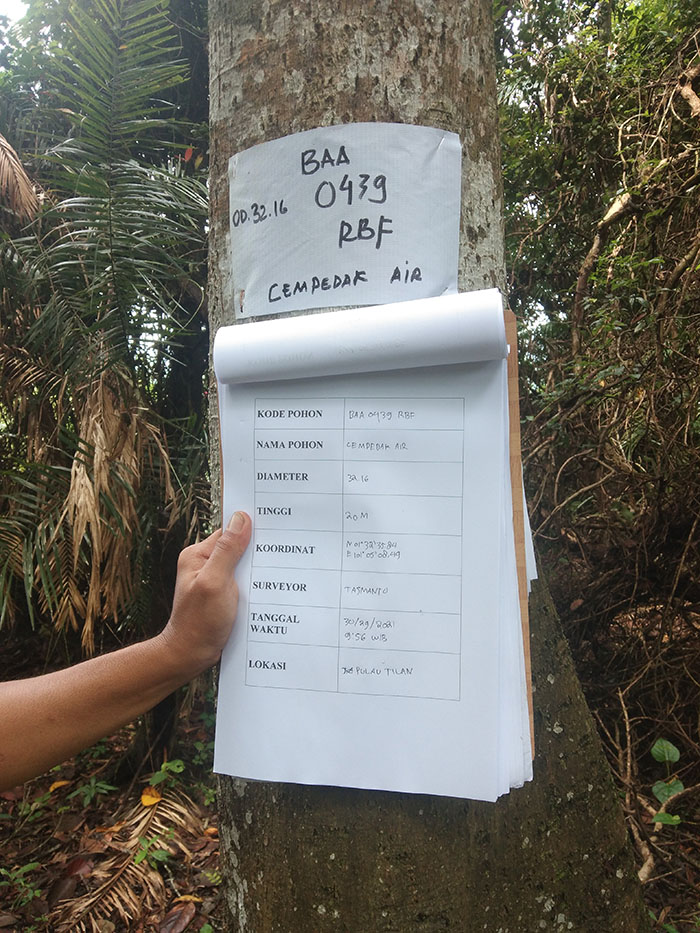 BAA
0439
OD.32.16
RBF
CEMPEDAK AIR
KODE POHON BAA 0439 RBF
NAMA POHON CEMPEDAK AIR
DIAMETER 32.16
TINGGI 20 M
KOORDINAT N 01°32'35.84
E 101°05'08.49
SURVEYOR TASMANTO
TANGGAL 30/29/2021
WAKTU 9:56 WIB
LOKASI PULAU TILAN